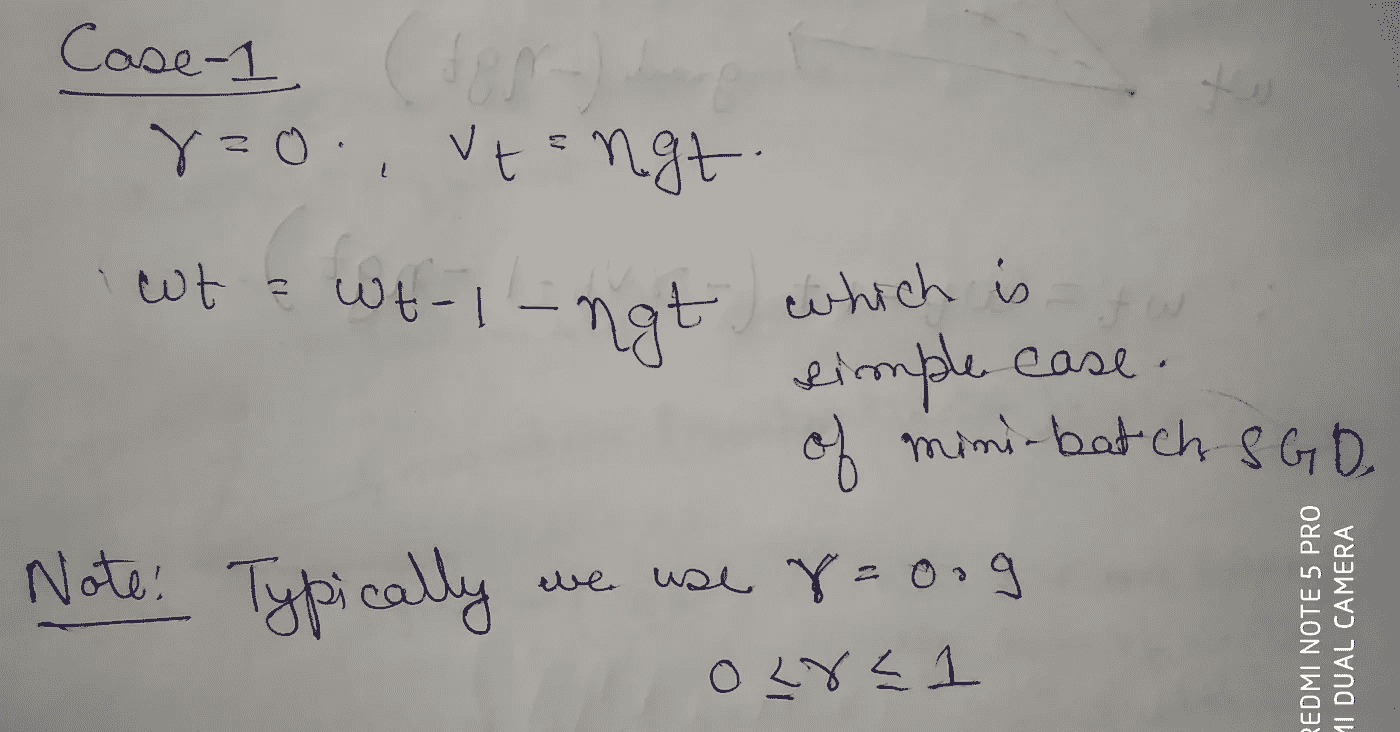 Case-1
γ = 0 . , vt = ηgt .
wt = wt-1 - ηgt which is
simple case .
of mini-batch SGD.
Note: Typically we use γ = 0.9
0 ≤ γ ≤ 1
REDMI NOTE 5 PRO
MI DUAL CAMERA